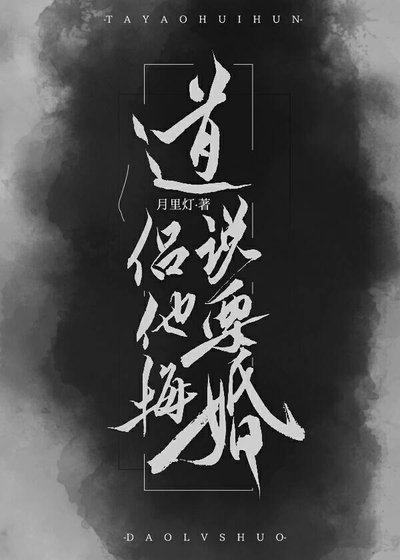 ·TAYAOHUIHUN·
道
月里灯·著
侣说
他要
悔婚
·DAOLVSHUO·